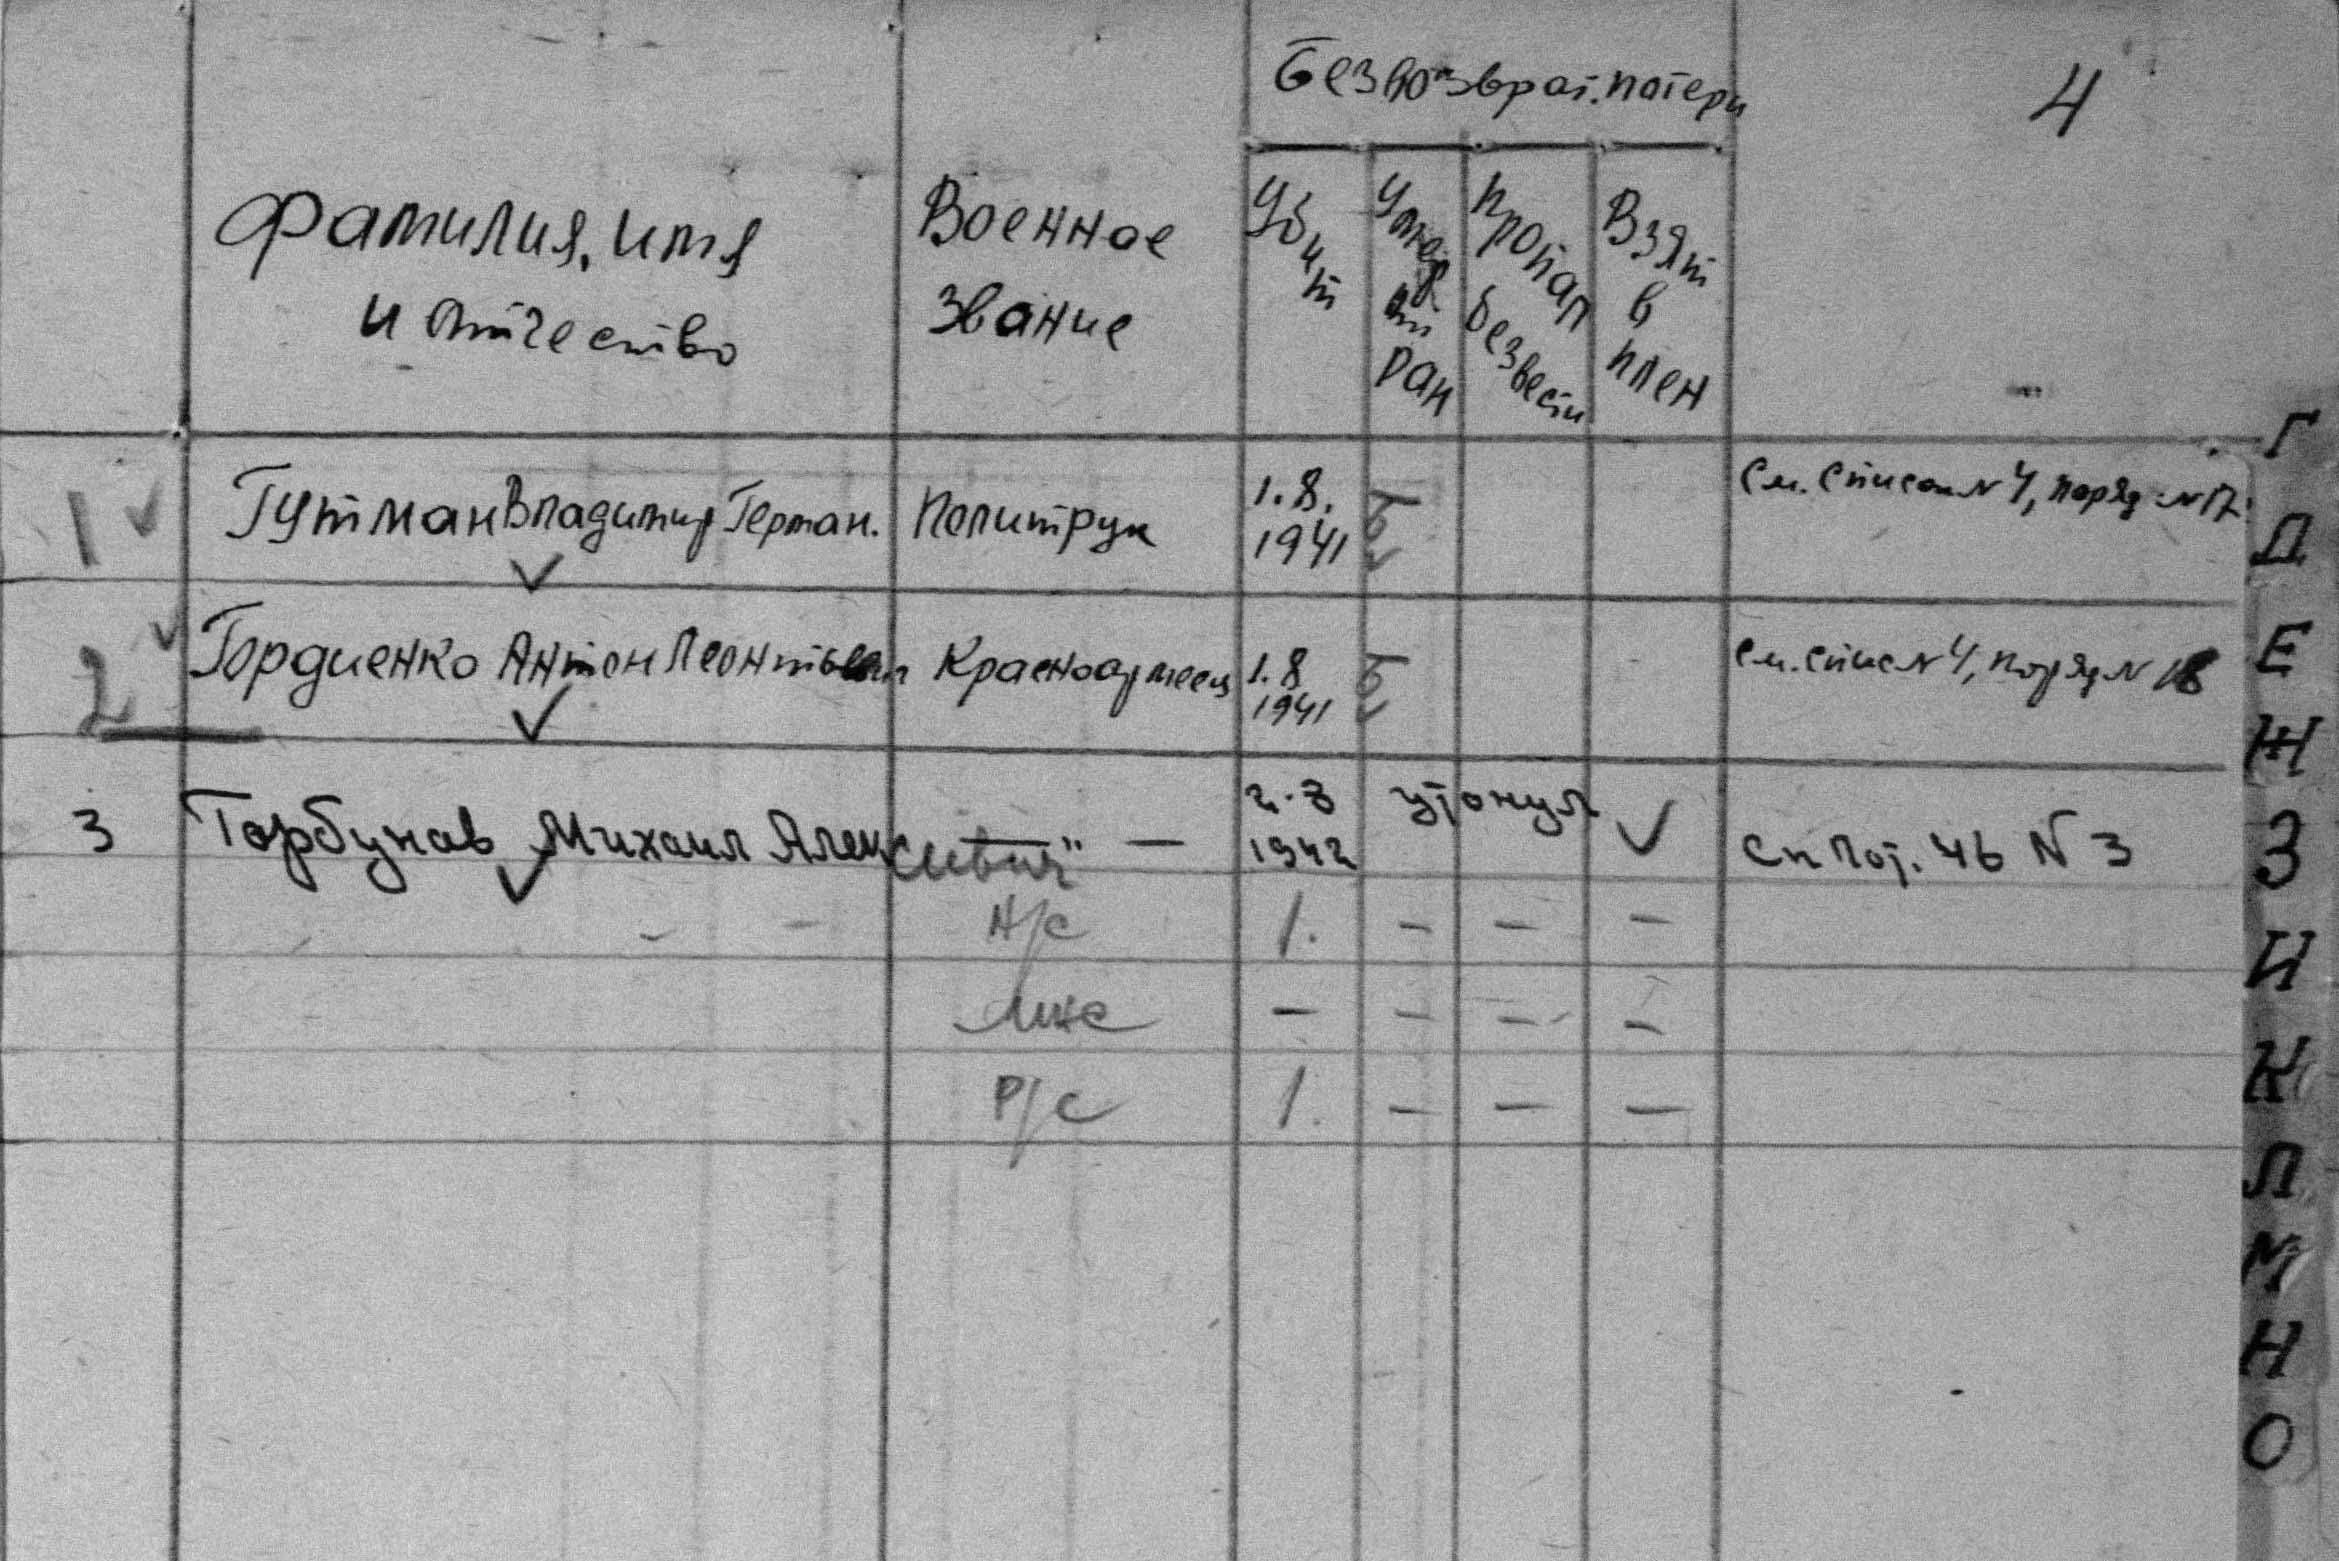 Безвозврат. потери
4
Фамилия, имя
и отчество
Военное
звание
Убит
Умер
от
ран
Пропал
безвести
Взят
в
плен
1 Гутман Владимир Герман. Политрук 1.8. 1941 См. список N 4, поряд. N 17.
2 Гордиенко Антон Леонтьевич Красноармеец 1.8 1941 См. спис N 4, поряд N 18
3 Горбунов Михаил Алексеевич — " — 2.8 1942 утонул Сп Пот. 46 N 3
Н/с 1. - - -
Мнс - - - -
Р/с 1. - - -
Г
Д
Е
Ж
З
И
К
Л
М
Н
О